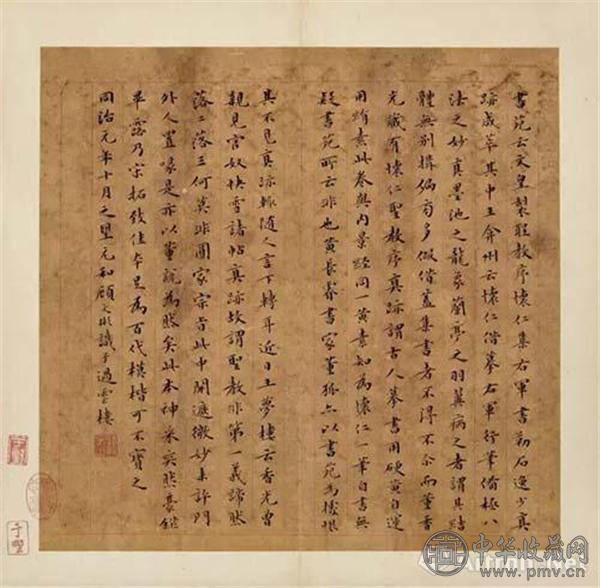 書苑云文皇製聖教序懷仁集右軍書勒石逸少真
跡咸萃其中王弇州云懷仁偕摹右軍行筆備極八
法之妙真墨池之龍象蘭亭之羽翼病之者謂其結
體無別搆偏旁多假借蓋集書者不得不尒而董香
光藏有懷仁聖教序真跡謂古人摹書用硬黃自運
用絹素此卷與內景經同一黃素知為懷仁一筆自書無
疑書苑所云非也黃長睿書家董狐亦以書苑為據恨
其不見真跡輒隨人言下轉耳近日王夢樓云香光曾
親見官奴快雪諸帖真跡故謂聖教非第一義諦然
落二落三何莫非圓家宗旨此中開遮微妙未許門
外人置喙是亦以董說為然矣此本神采奕然豪鋩
畢露乃宋拓致佳本足為百代模楷可不寶之
同治元年十月之望元和顧文彬識于過雲樓
中华收藏网
www.pmv.cn